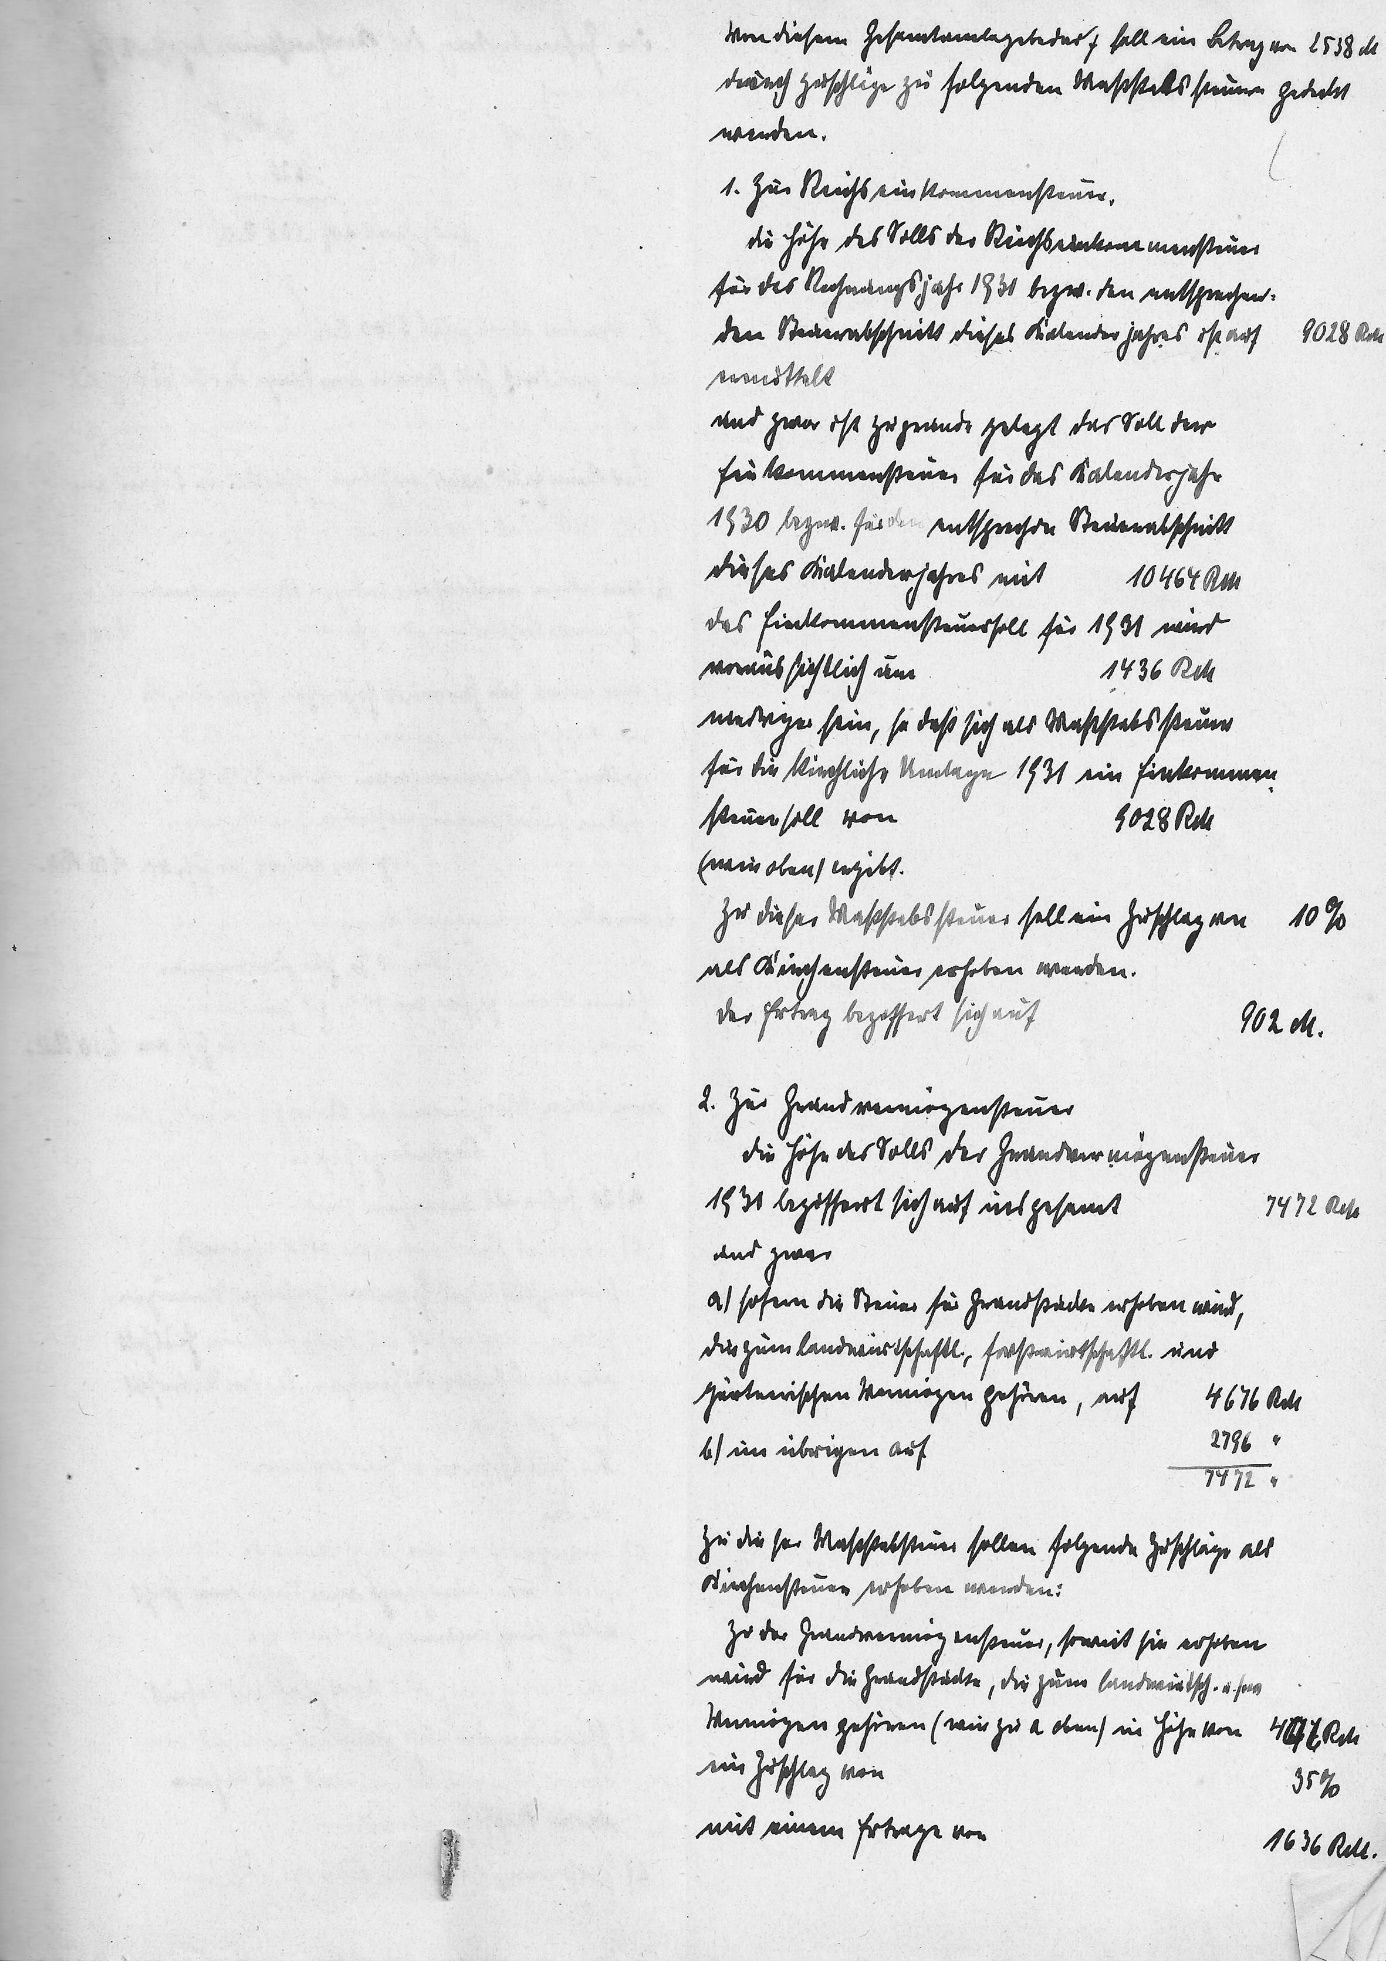 Von diesem Gesamtumlagebedarf soll ein Betrag von 2538 M
durch Zuschläge zu folgenden Massstabssteuern gedeckt
werden.
1. Zur Reichseinkommensteuer.
Die Höhe des Solls der Reichseinkommensteuer
für das Rechnungsjahr 1931 bezw. den entsprechen-
den Steuerabschnitt dieses Kalenderjahres ist auf 9028 RM
ermittelt
und zwar ist zugrunde gelegt das Soll der
Einkommensteuer für das Kalenderjahr
1930 bezw. für den entsprechen Steuerabschnitt
dieses Kalenderjahres mit 10464 RM
das Einkommensteuersoll für 1931 wird
voraussichtlich um 1436 RM
niedriger sein, so daß sich als Massstabssteuer
für die kirchliche Umlage 1931 ein Einkommen-
steuersoll von 9028 RM
(wie oben) ergibt.
Zu dieser Massstabssteuer soll ein Zuschlag von 10%
als Kirchensteuer erhoben werden.
Der Ertrag beziffert sich auf 902 M.
2. Zur Grundvermögensteuer
Die Höhe des Solls der Grundvermögensteuer
1931 beziffert sich auf insgesamt 7472 RM
und zwar
a) sofern die Steuer für Grundstücke erhoben wird,
die zum landwirtschaftl., forstwirtschaftl. und
gärtnerischen Vermögen gehören, auf 4676 RM
b) im übrigen auf 2796 "
7472 "
Zu dieser Massstabsteuer sollen folgende Zuschläge als
Kirchensteuer erhoben werden:
Zu der Grundvermögensteuer, soweit sie erhoben
wird für die Grundstücke, die zum landwirtsch. u.
Vermögen gehören (wie zu a oben) in Höhe von RM
ein Zuschlag von 35%
mit einem Ertrage von 1636 RM.